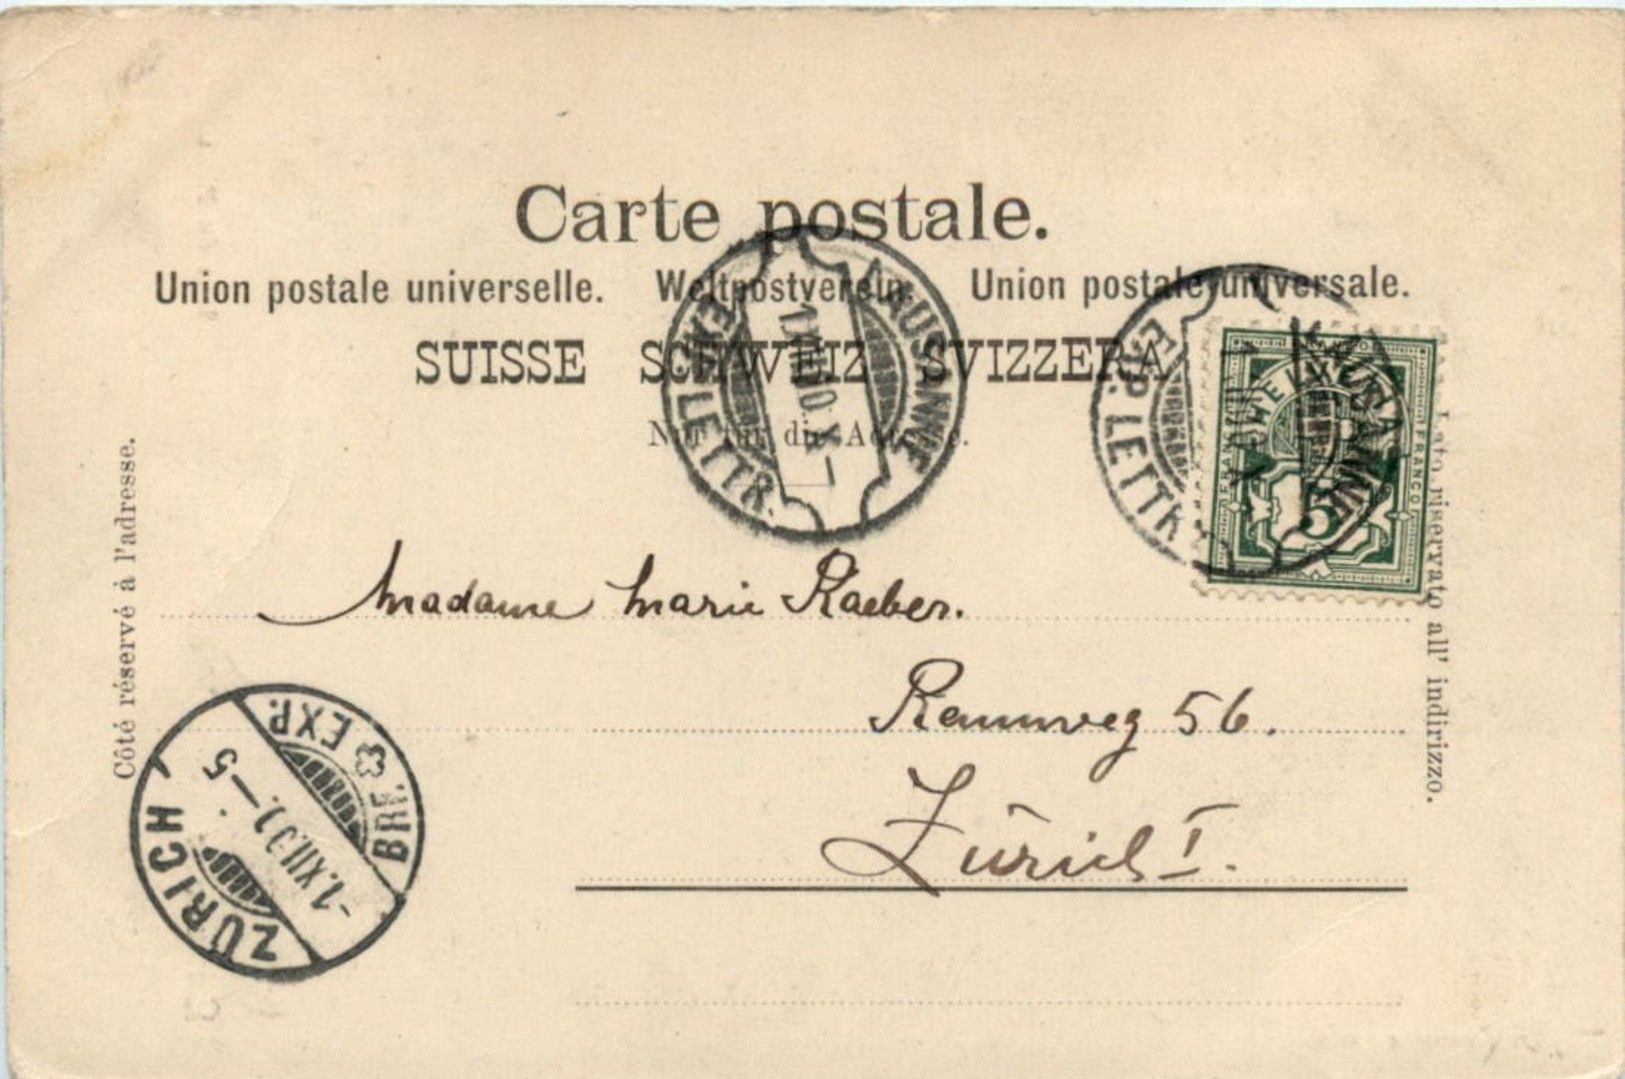 Carte postale.
Union postale universelle. Weltpostverein. Union postale universale.
SUISSE SCHWEIZ SVIZZERA
Nur für die Adresse.
Côté réservé à l'adresse.
Lato riservato all' indirizzo.
LAUSANNE
EXP. LETTR.
LAUSANNE
EXP. LETTR.
HELVETIA
FRANCO
FRANCO
5
Madame Marie Raeber.
Rennweg 56.
Zürich I.
ZÜRICH
BRF. EXP.
-1.XII.00.-5